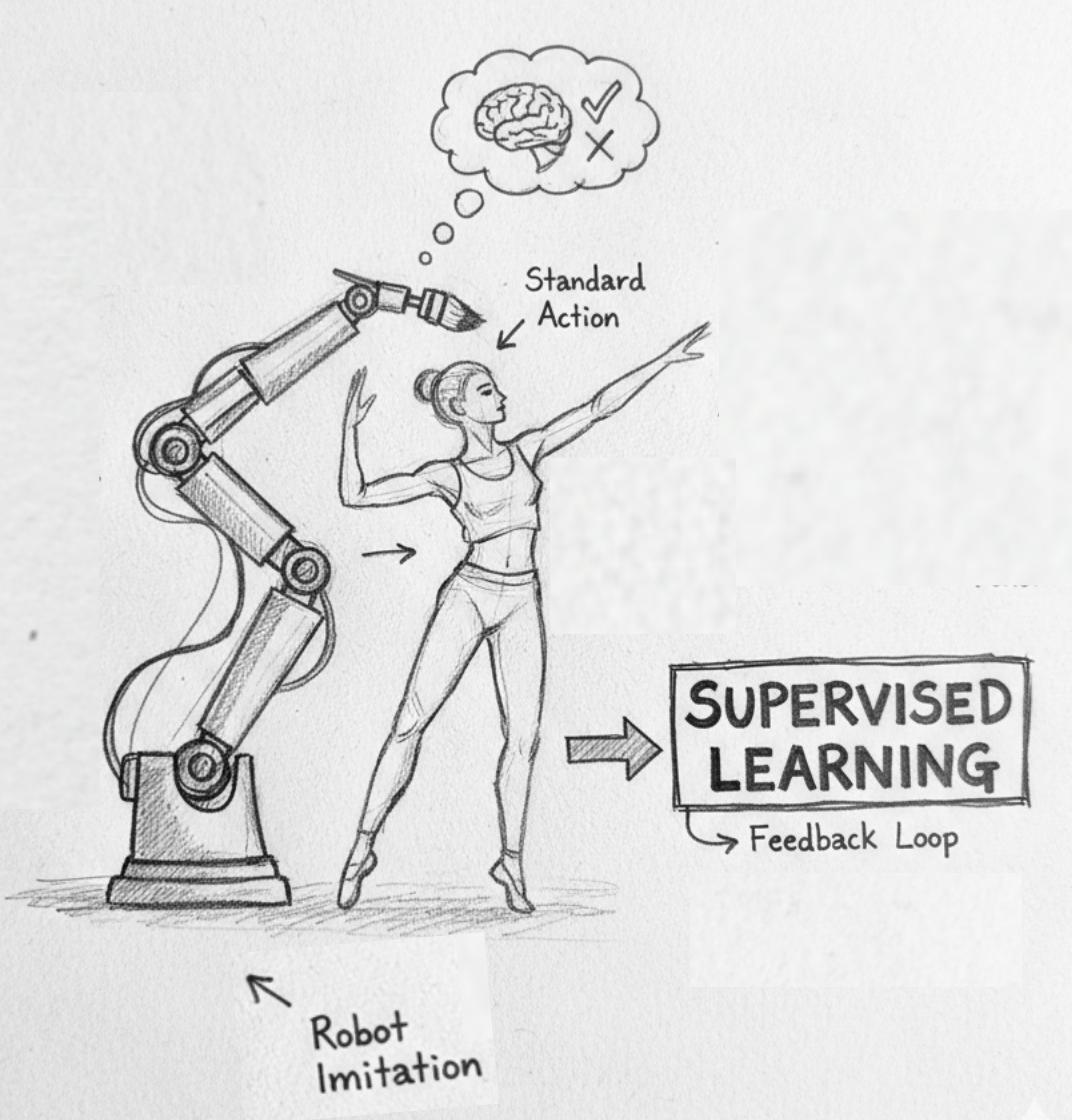 Standard
Action
SUPERVISED
LEARNING
Feedback Loop
Robot
Imitation